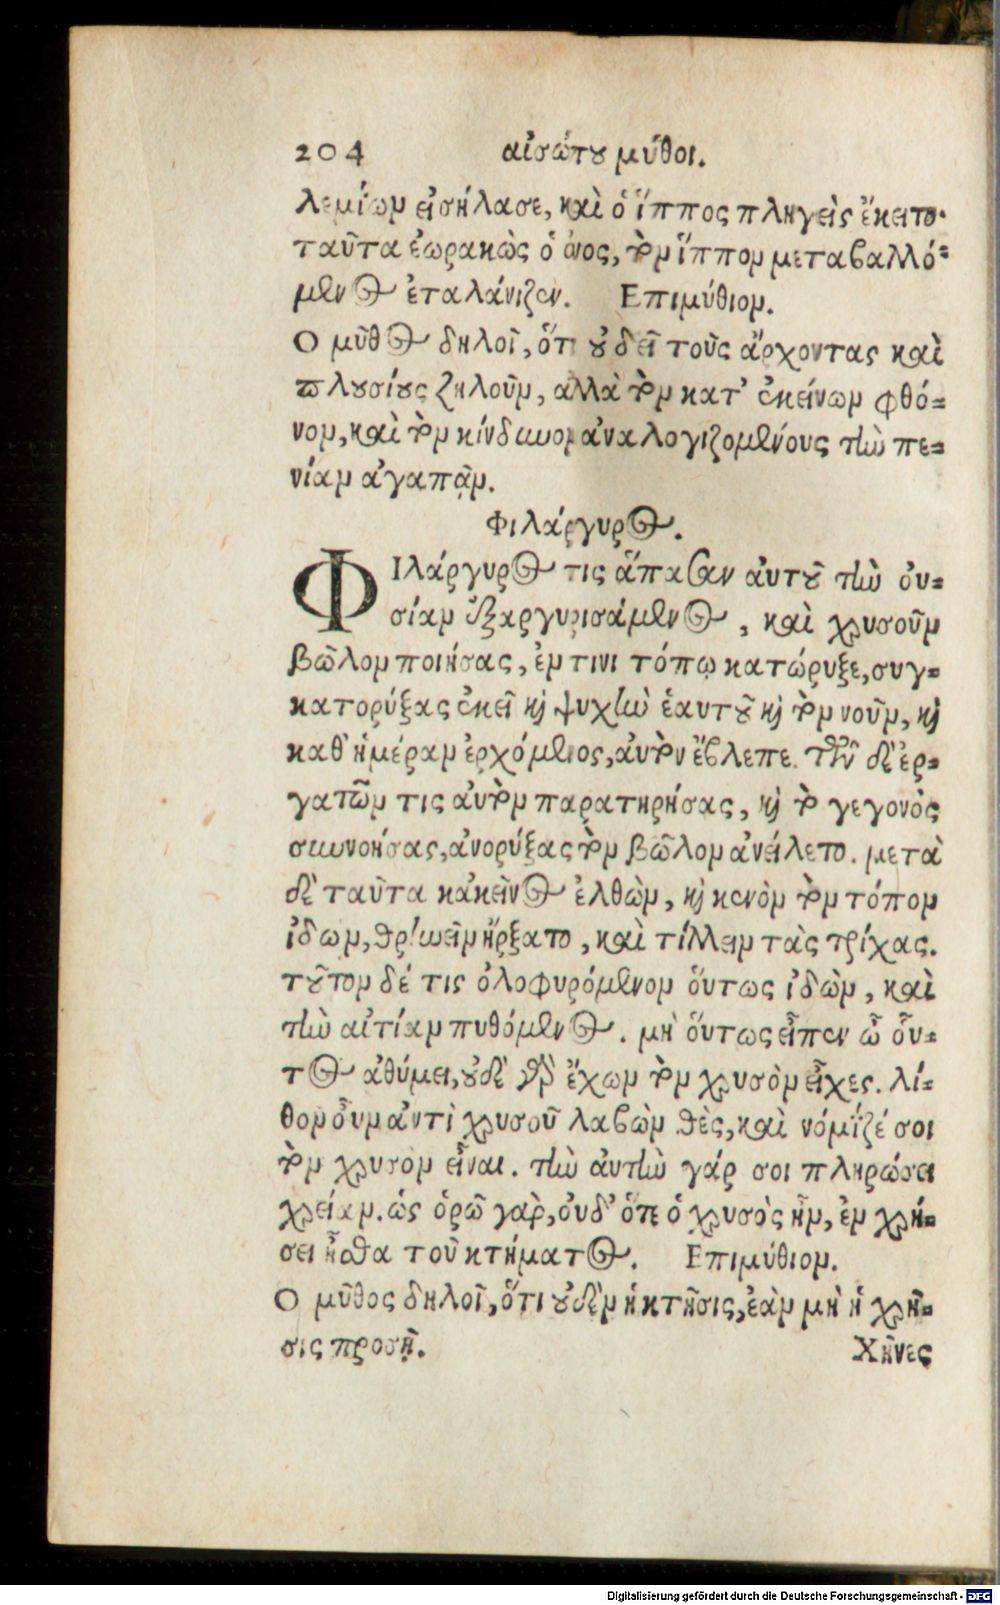 204 αἰσώπου μῦθοι.
λεμίων εἰσήλασε, καὶ ὁ ἵππος πληγεὶς ἔκειτο.
ταῦτα ἑωρακὼς ὁ ὄνος, τὸν ἵππον μεταβαλλό-
μενος ἐταλάνιζεν. Επιμύθιον.
Ο μῦθος δηλοῖ, ὅτι οὐ δεῖ τοὺς ἄρχοντας καὶ
πλουσίους ζηλοῦν, αλλὰ τὸν κατ' ἐκείνων φθό-
νον, καὶ τὸν κίνδυνον ἀναλογιζομένους τὴν πε-
νίαν ἀγαπᾷν.
Φιλάργυρος.
ΦΙλάργυρός τις ἅπασαν ἀυτοῦ τὴν ὀυ-
σίαν ἐξαργυρισάμενος, καὶ χρυσοῦν
βῶλον ποιήσας, ἐν τινι τόπῳ κατώρυξε, συγ-
κατορύξας ἐκεῖ καὶ ψυχὴν ἑαυτοῦ καὶ τὸν νοῦν, καὶ
καθ' ἡμέραν ἐρχόμενος, ἀυτὸν ἔβλεπε. τῶν δὲ ἐρ-
γατῶν τις ἀυτὸν παρατηρήσας, καὶ τὸ γεγονὸς
συννοήσας, ἀνορύξας τὸν βῶλον ἀνείλετο. μετὰ
δὲ ταῦτα κἀκεῖνος ἐλθὼν, καὶ κενὸν τὸν τόπον
ἰδων, θρηνεῖν ἤρξατο, καὶ τίλλειν τὰς τρίχας.
τοῦτον δέ τις ὀλοφυρόμενον ὅυτως ἰδὼν, καὶ
τὴν αἰτίαν πυθόμενος. μὴ ὅυτως εἶπεν ὦ οὗ-
τος ἀθύμει, οὐδὲ γὰρ ἔχων τὸν χρυσὸν εἶχες. λί-
θον οὖν ἀντὶ χρυσοῦ λαβὼν θὲς, καὶ νόμιζέ σοι
τὸν χρυσον εἶναι. τὴν ἀυτὴν γάρ σοι πληρώσει
χρείαν. ὡς ὁρῶ γαρ, ὀυδ' ὅτε ὁ χρυσὸς ἦν, ἐν χρή-
σει ἦσθα τοῦ κτήματος. Επιμύθιον.
Ο μῦθος δηλοῖ, ὅτι οὐδὲν ἡ κτῆσις, ἐὰν μὴ ἡ χρῆ-
σις προσῇ. Χῆνες
Digitalisierung gefördert durch die Deutsche Forschungsgemeinschaft - DFG